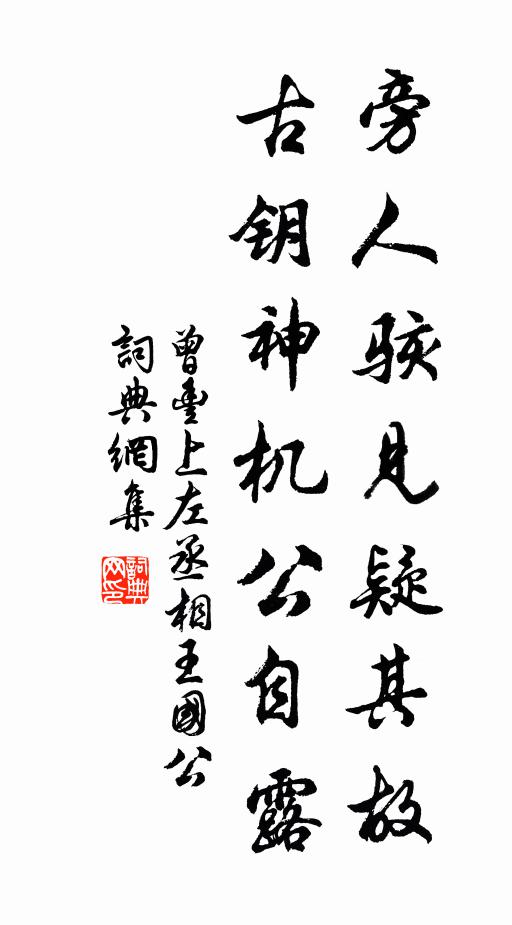 旁人骇见疑其故
古钥神机公自露
曾豐上左丞相王國公
詞典網集
詞典網印